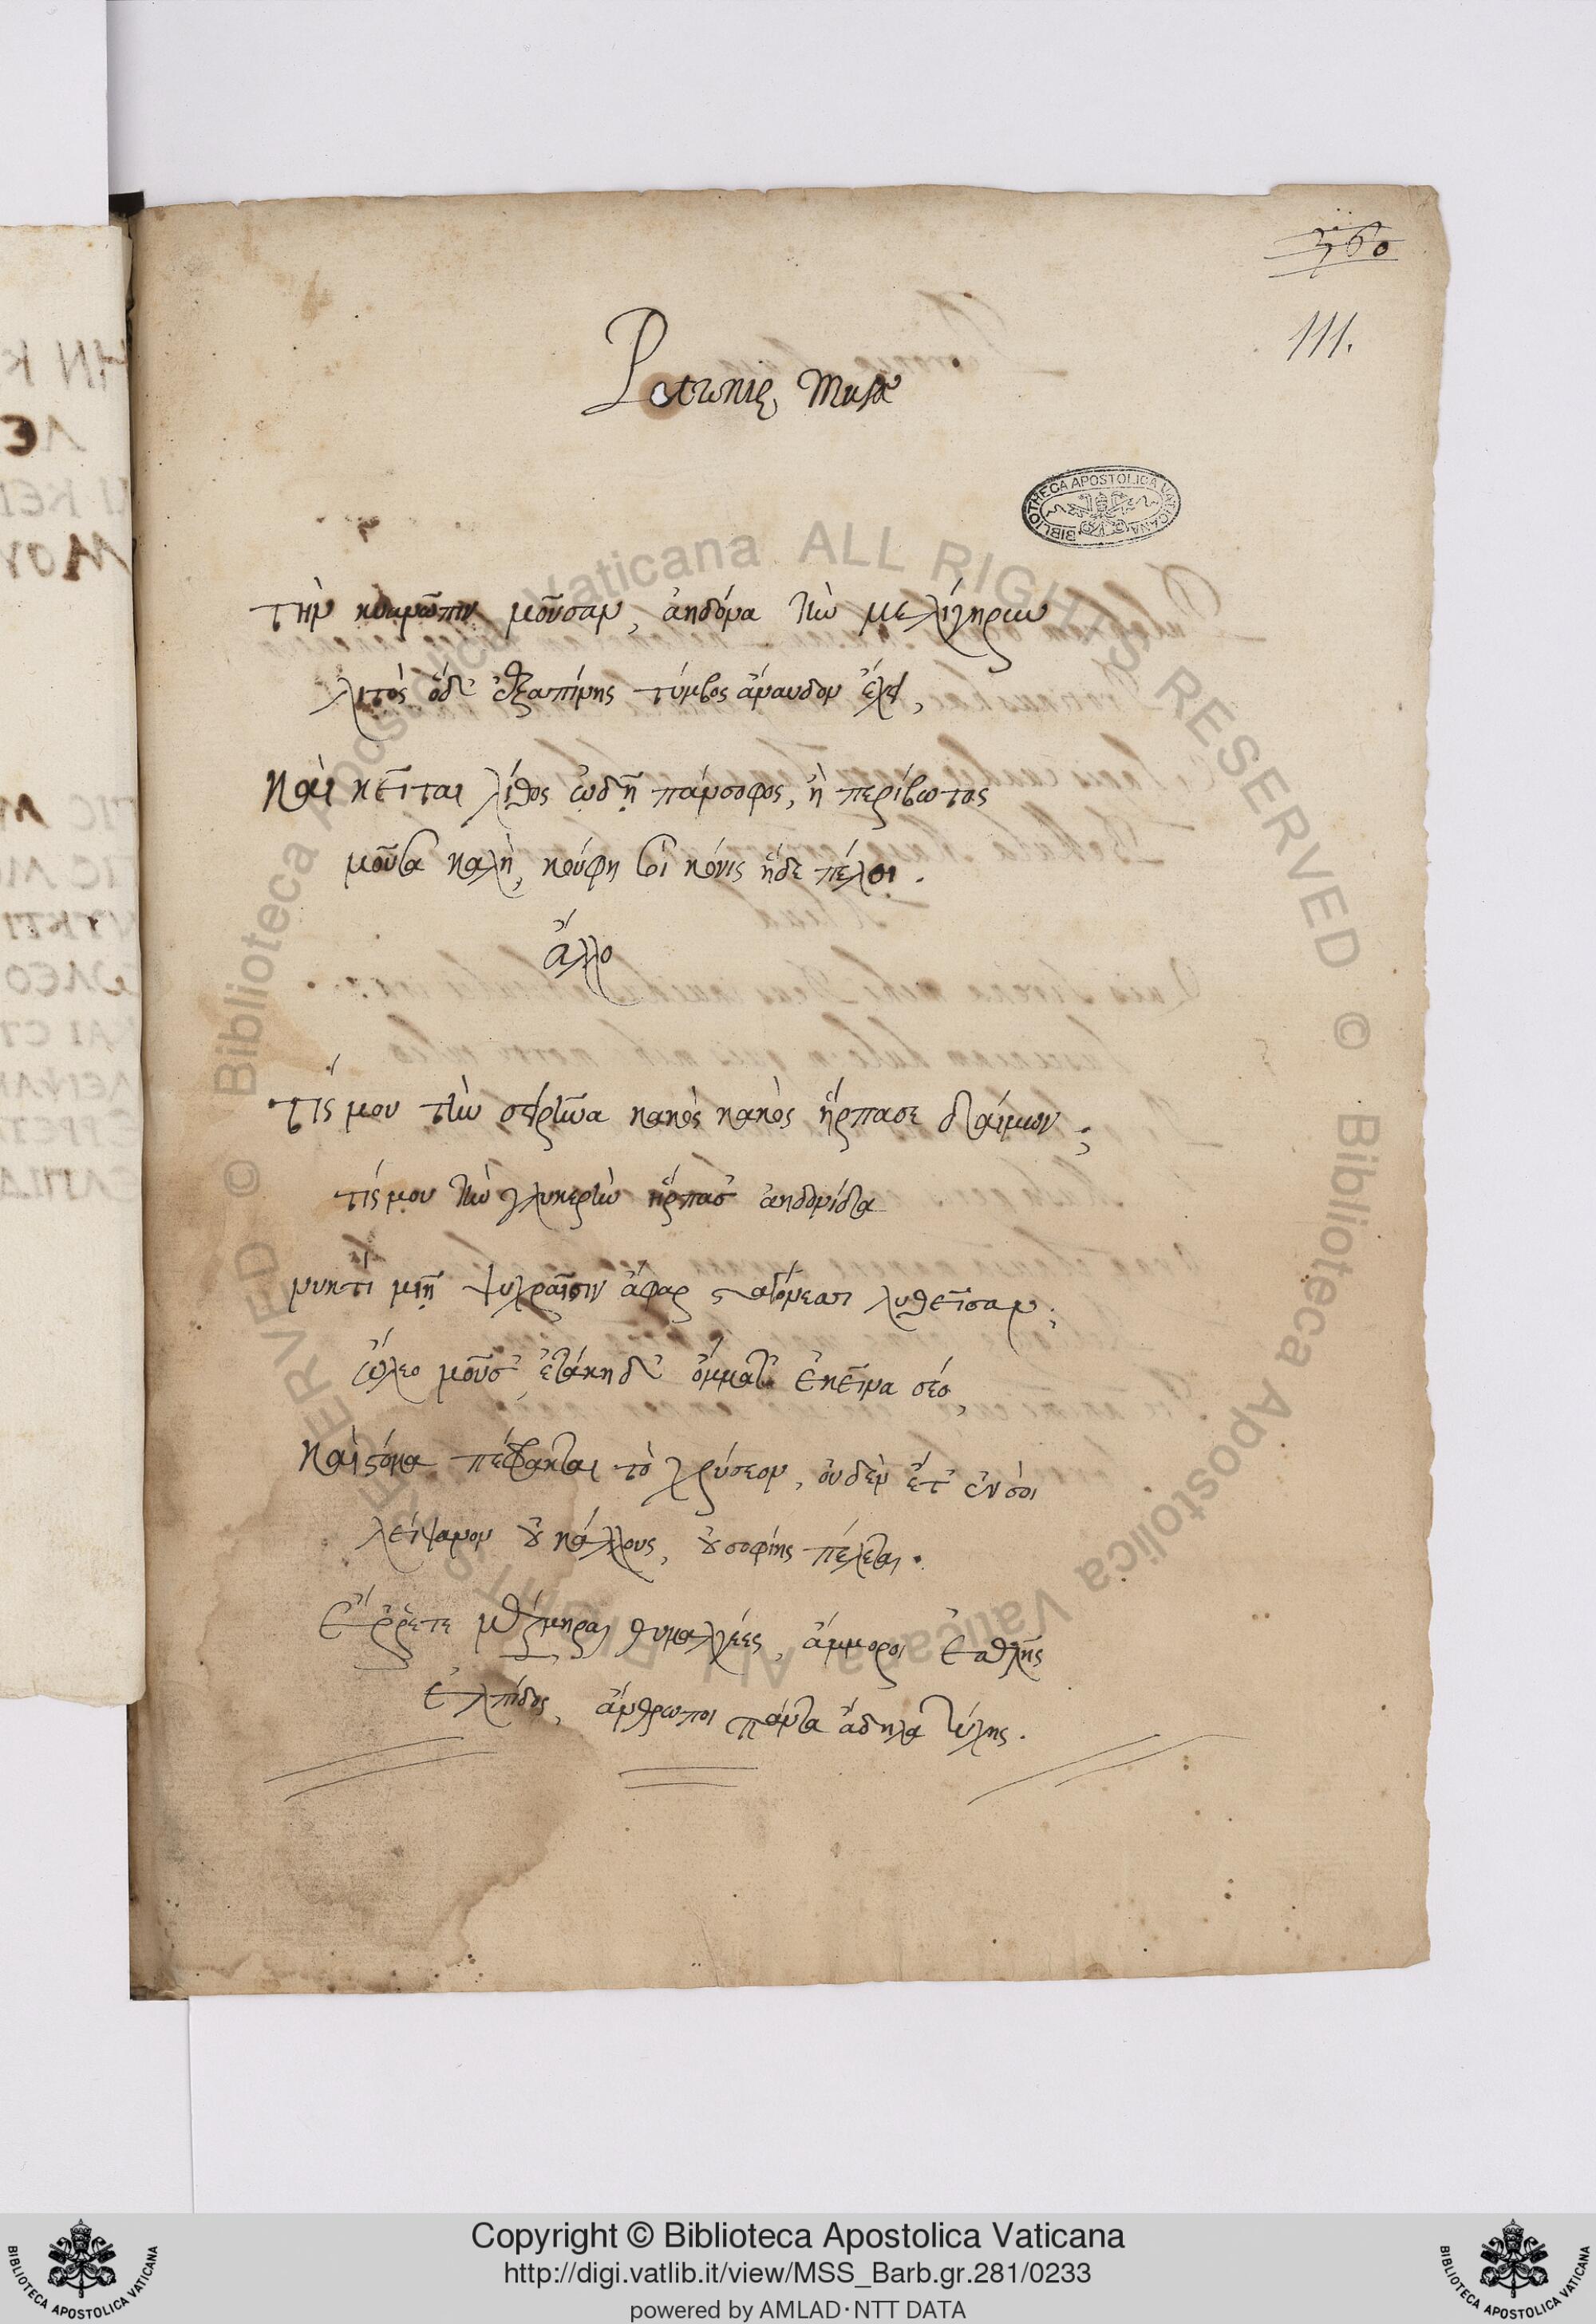 360
111.
Petroniæ Musæ
τὴν κυανῶπιν μοῦσαν, ἀηδόνα τὴν μελίγηρυν
λιτὸς ὅδ' ἐξαπίνης τύμβος ἄναυδον ἔχει,
καὶ κεῖται λίθος ὡδῆ πάνσοφος, ἡ περίβωτος
μοῦσα καλὴ, κούφη σοι κόνις ἥδε πέλοι.
ἄλλο
τίς μου τὴν σειρῆνα κακὸς κακὸς ἥρπασε δαίμων;
τίς μου τὴν γλυκερὴν ἥρπασ' ἀηδονίδα
νυκτὶ μιῇ ψυχραῖσιν ἄφαρ σταγόνεσσι λυθεῖσαν;
ὤλεο μοῦσ' ἐτάκη δ' ὄμματ' ἐκεῖνα σέο,
καὶ στόμα πέφρακται τὸ χρύσεον, οὐδὲν ἔτ' ἐν σοὶ
λείψανον οὐ κάλλους, οὐ σοφίης πέλεται.
ἔῤῥετε μέριμναι θυμαλγέες, ἄμμοροι ἐσθλῆς
ἐλπίδος, ἄνθρωποι πάντα ἄδηλα τύχης.
BIBLIOTHECA APOSTOLICA VATICANA
© Biblioteca Apostolica Vaticana ALL RIGHTS RESERVED © Biblioteca Apostolica Vaticana ALL RIGHTS RESERVED
Copyright © Biblioteca Apostolica Vaticana
http://digi.vatlib.it/view/MSS_Barb.gr.281/0233
powered by AMLAD·NTT DATA
BIBLIOTECA APOSTOLICA VATICANA
BIBLIOTECA APOSTOLICA VATICANA